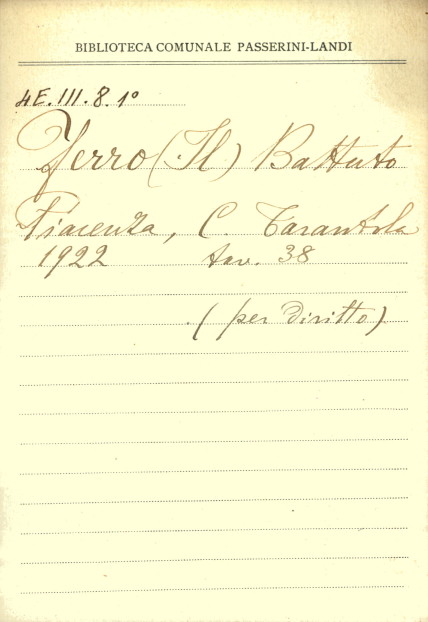 BIBLIOTECA COMUNALE PASSERINI-LANDI
4E.III.8.1°
Ferro (Il) Battuto
Piacenza, C. Tarantola
1922 tav. 38
(per diritto)